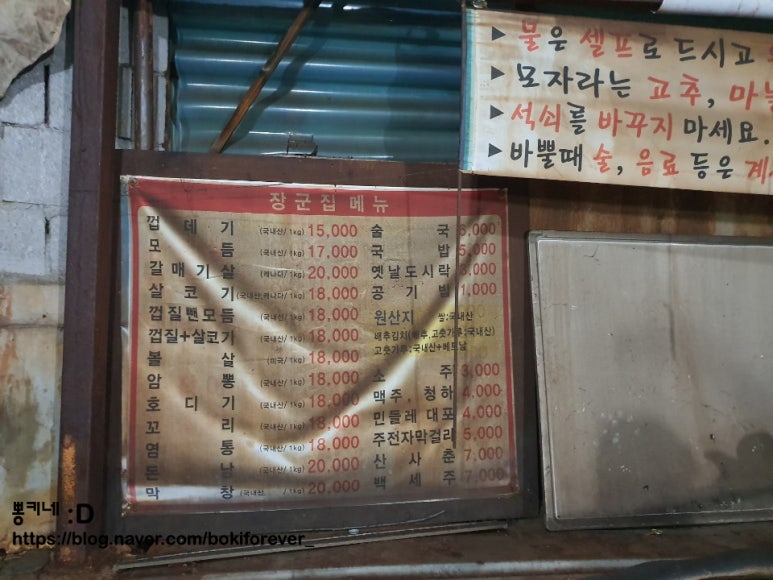 ▶ 물은 셀프로 드시고
▶ 모자라는 교추, 마늘
▶ 석쇠를 바꾸지 마세요.
▶ 바쁠때 술, 음료 등은
장군집 메뉴
껍데기 (국내산/1kg) 15,000
모듬 (국내산/1kg) 17,000
갈매기살 (캐나다/1kg) 20,000
살코기 (국내산,캐나다/1kg) 18,000
껍질뺀모듬 (국내산/1kg) 18,000
껍질+살코기 (국내산/1kg) 18,000
볼살 (미국/1kg) 18,000
암뽕 (국내산/1kg) 18,000
호디기 (국내산/1kg) 18,000
꼬리 (국내산/1kg) 18,000
염통 (국내산/1kg) 18,000
돈낭 (국내산/1kg) 20,000
막창 (국내산/1kg) 20,000
술국 6,000
국밥 5,000
옛날도시락 3,000
공기밥 1,000
원산지 쌀;국내산
배추김치(배추,고춧가루;국내산)
고춧가루;국내산+베트남
소주 3,000
맥주, 청하 4,000
민들레 대포 4,000
주전자막걸리 5,000
산사춘 7,000
백세주 7,000
뽕키네 :D
https://blog.naver.com/bokiforever_